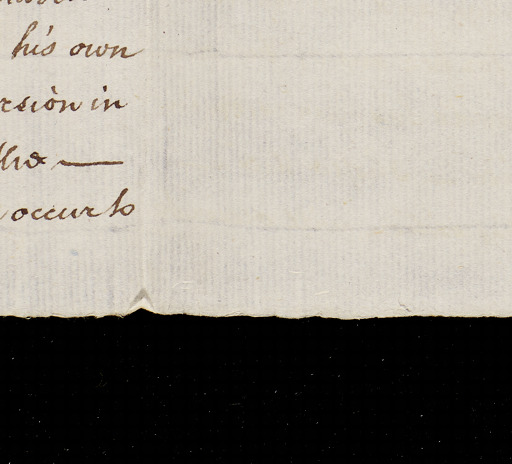 his own
rsion in
the —
occur to